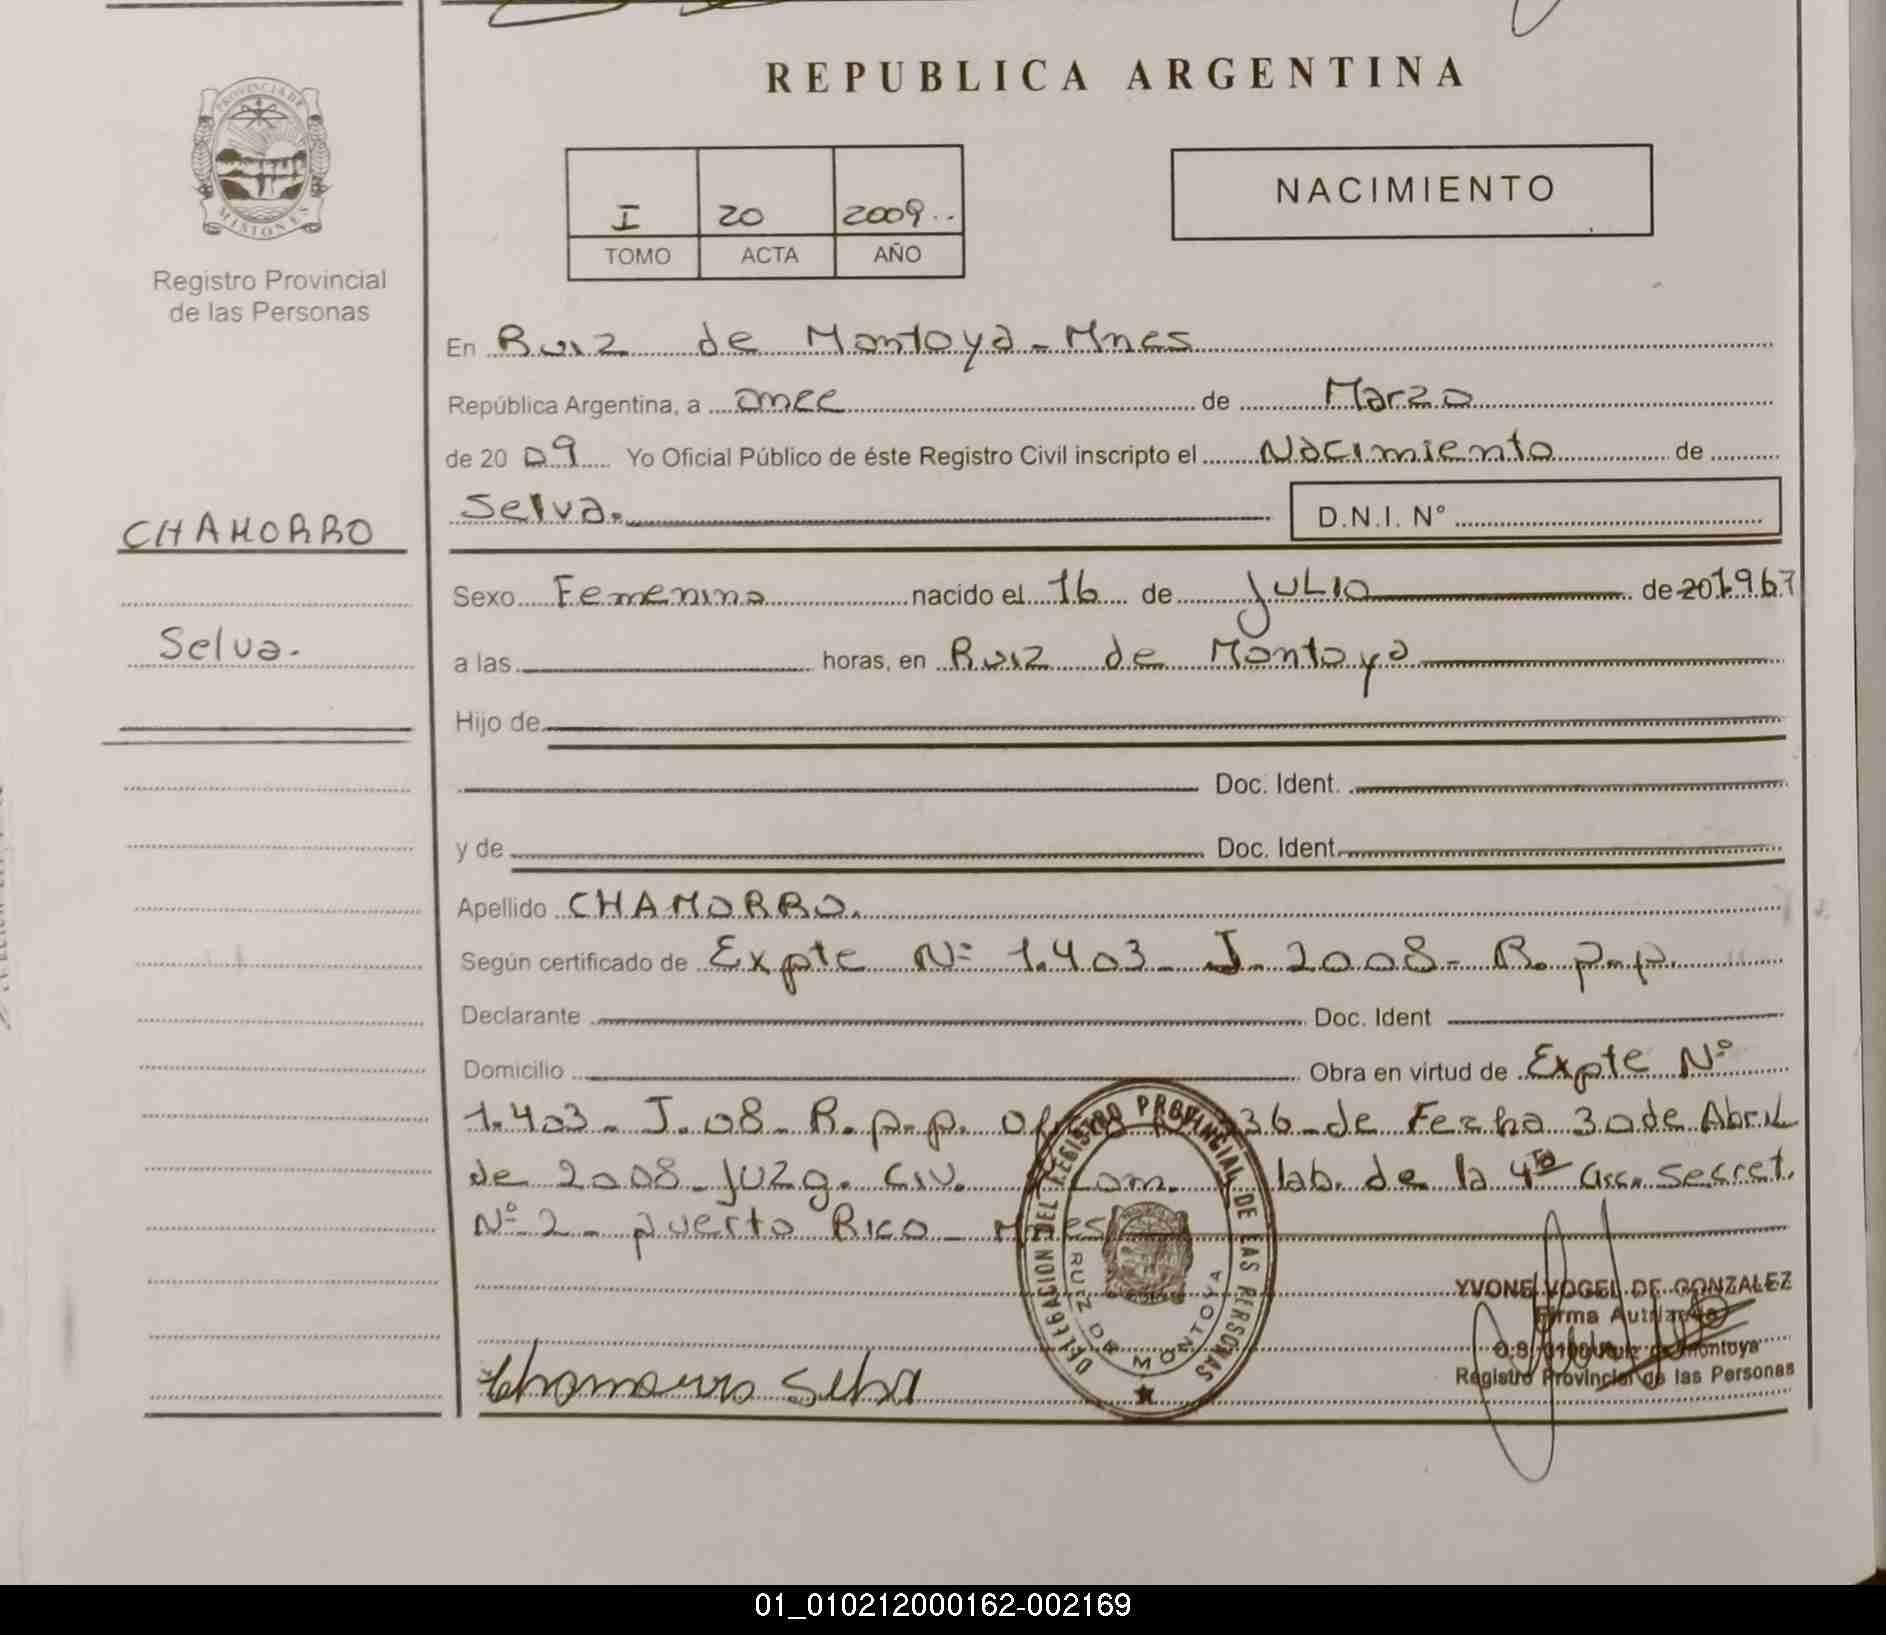 REPUBLICA ARGENTINA
PROVINCIA DE
MISIONES
Registro Provincial
de las Personas
I 20 2009..
TOMO ACTA AÑO
NACIMIENTO
En Ruiz de Montoya - Mnes
República Argentina, a once de Marzo
de 20 09 Yo Oficial Público de éste Registro Civil inscripto el Nacimiento de
Selva. D.N.I. N°
CHAMORRO
Selva.
Sexo Femenino nacido el 16 de JULIO de 201967
a las horas, en Ruiz de Montoya
Hijo de
Doc. Ident.
y de Doc. Ident.
Apellido CHAMORRO.
Según certificado de Expte Nº 1.403 - J. 2008 - R. p.p.
Declarante Doc. Ident
Domicilio Obra en virtud de Expte Nº
1.403 - J. 08 - R. p.p. 36 - de Fecha 30 de Abril
de 2008 - JUZg. CIV. Com. lab. de la 4ta Circ. Secret.
Nº 2 - puerto Rico - Mnes
DELEGACION DEL REGISTRO PROVINCIAL DE LAS PERSONAS
RUIZ DE MONTOYA
Chamorro Selva
YVONE VOGEL DE GONZALEZ
Firma
Montoya
Registro Provincial de las Personas
01_010212000162-002169